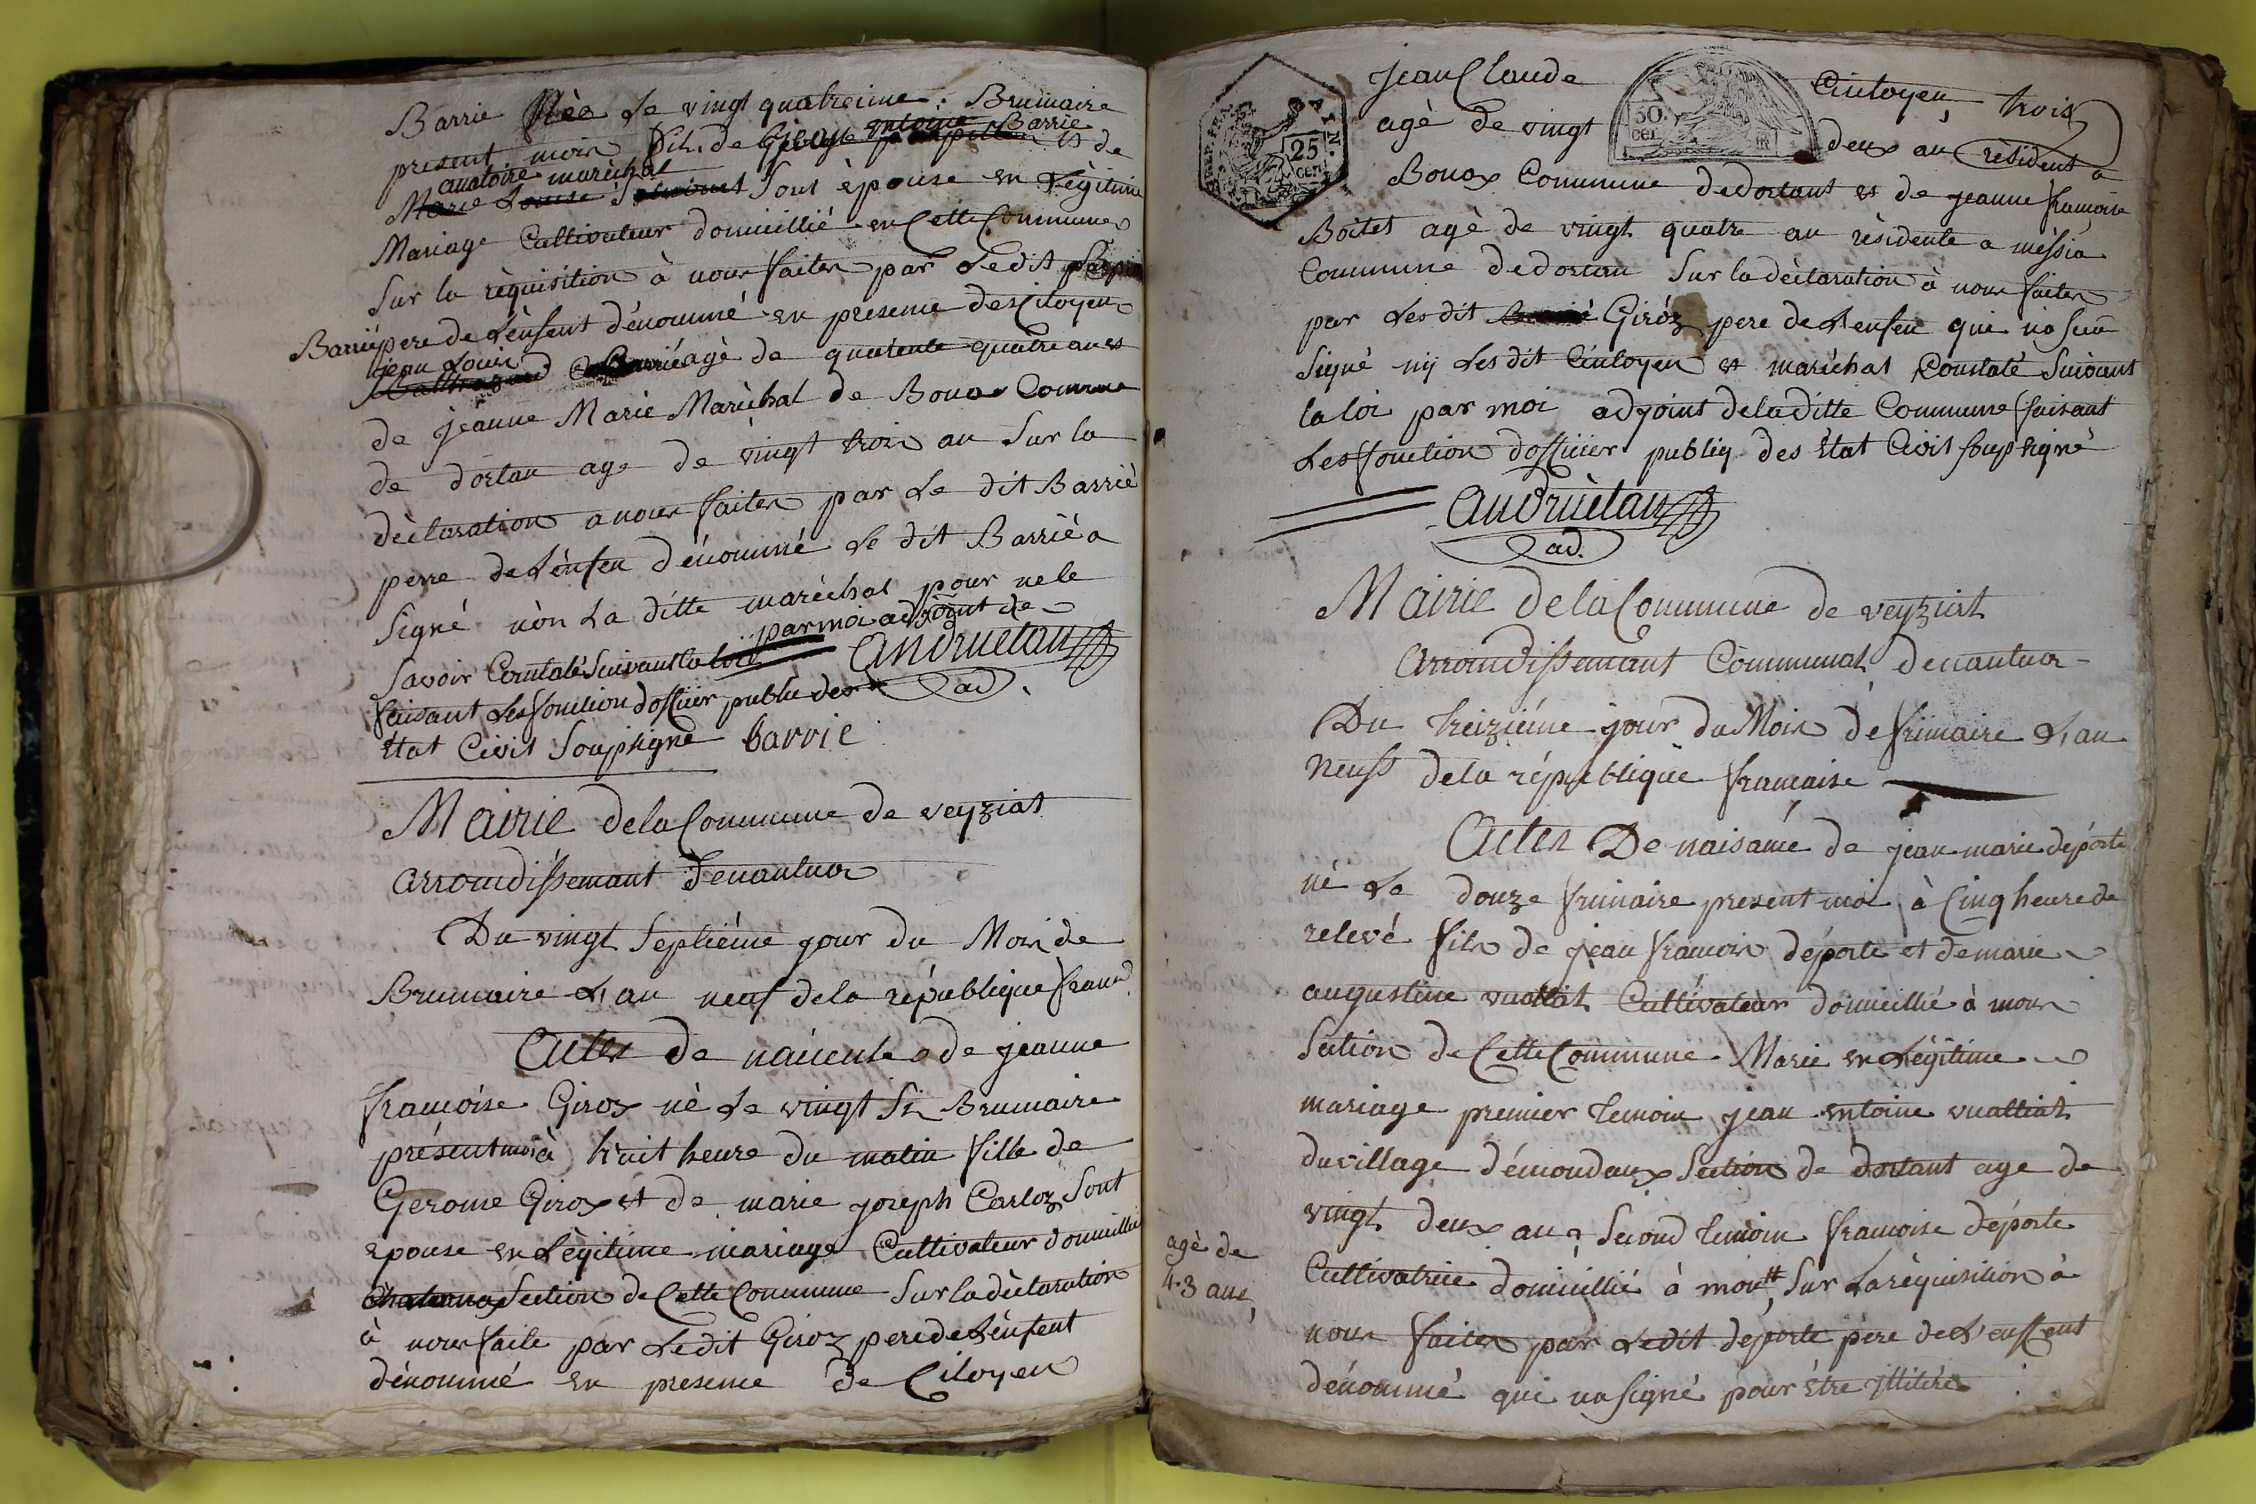 Barrie Née Le vingt quatreime Brumaire
present mois fils de jean entoine Barrie et de
anatoire maréchal
Marie Louise Sont èpouse en Légitime
Mariage Cultivateur domicillié en Cette Commune
Sur la rèquisition à nous faites par Ledit
Barrié pere de Lénfent dénommé en presence des Citoyen
jean Louis Barrié agè de quatente quatre an et
de jeanne Marie Maréchal de Bouox Comune
de dortan age de vingt trois an Sur la
dèclaration a nous faites par Le dit Barrié
perre de Lénfen dénommé Le dit Barrié a
Signé nòn La ditte maréchal pour ne le
Savoir Contaté Suivant la loi par moi adjoint de
faisant Les fonction dofficier public des
Etat Civil Soupsigné Barrie
Andruetan
ad.
Mairie de la Commune de veyziat
arroindissemant denantua
Du vingt Septiéme jour du Mois de
Brumaire L'an neuf de la république franc
Actes de naicente de jeanne
francoise Girox né Le vingt Si Brumaire
présent moi à huit heure du matin fille de
Gerome Girox et de marie joseph Carloz Sont
epouse en Légitime mariage Cultivateur domicillié
Section de Cette Commune Sur la dèclaration
à nous faite par Ledit Giroz pere de Lénfent
dénommé en presence de Citoyen
25
cen
50
cen
jean Claude Cintoyen trois
agè de vingt deux an résident a
Bouox Commune de dortant et de jeanne francoise
Boitet agè de vingt quatre an résidente a méssia
Commune de dortan Sur la dèclaration à nous faites
par Les dit Giróz pere de Lenfen qui na Scu
Signé nij Les dit Cintoyen et maréchal Constaté Suivant
la loi par moi adjoint de la ditte Commune faisant
Les fonction dofficier publiq des état Civil Soupsigné
Andruètan
ad.
Mairie de la Commune de veyziat
Arroindissemant Communal denantua
Du treiziéme jour du Mois de frimaire L'an
Neuff de la république francaise
Actes De naisance de jean marie déporte
né Le douze frimaire present moi à Cinq heure de
relevé fils de jean francois déporte et de marie
augustine vuattiat Cultivateur domicillié à mons
Section de Cette Commune Marie en Légitime
mariage premier temoin jean entoine vuattiat
du village démondaux Section de dortant age de
vingt deux an, Second temoin francoise déporte
agè de
43 ans,
Cultivatrice domicillié à mons, Sur La rèquisition à
nous faites par Ledit deporte père de L'enffent
dénommé qui na Signé pour être illitéré